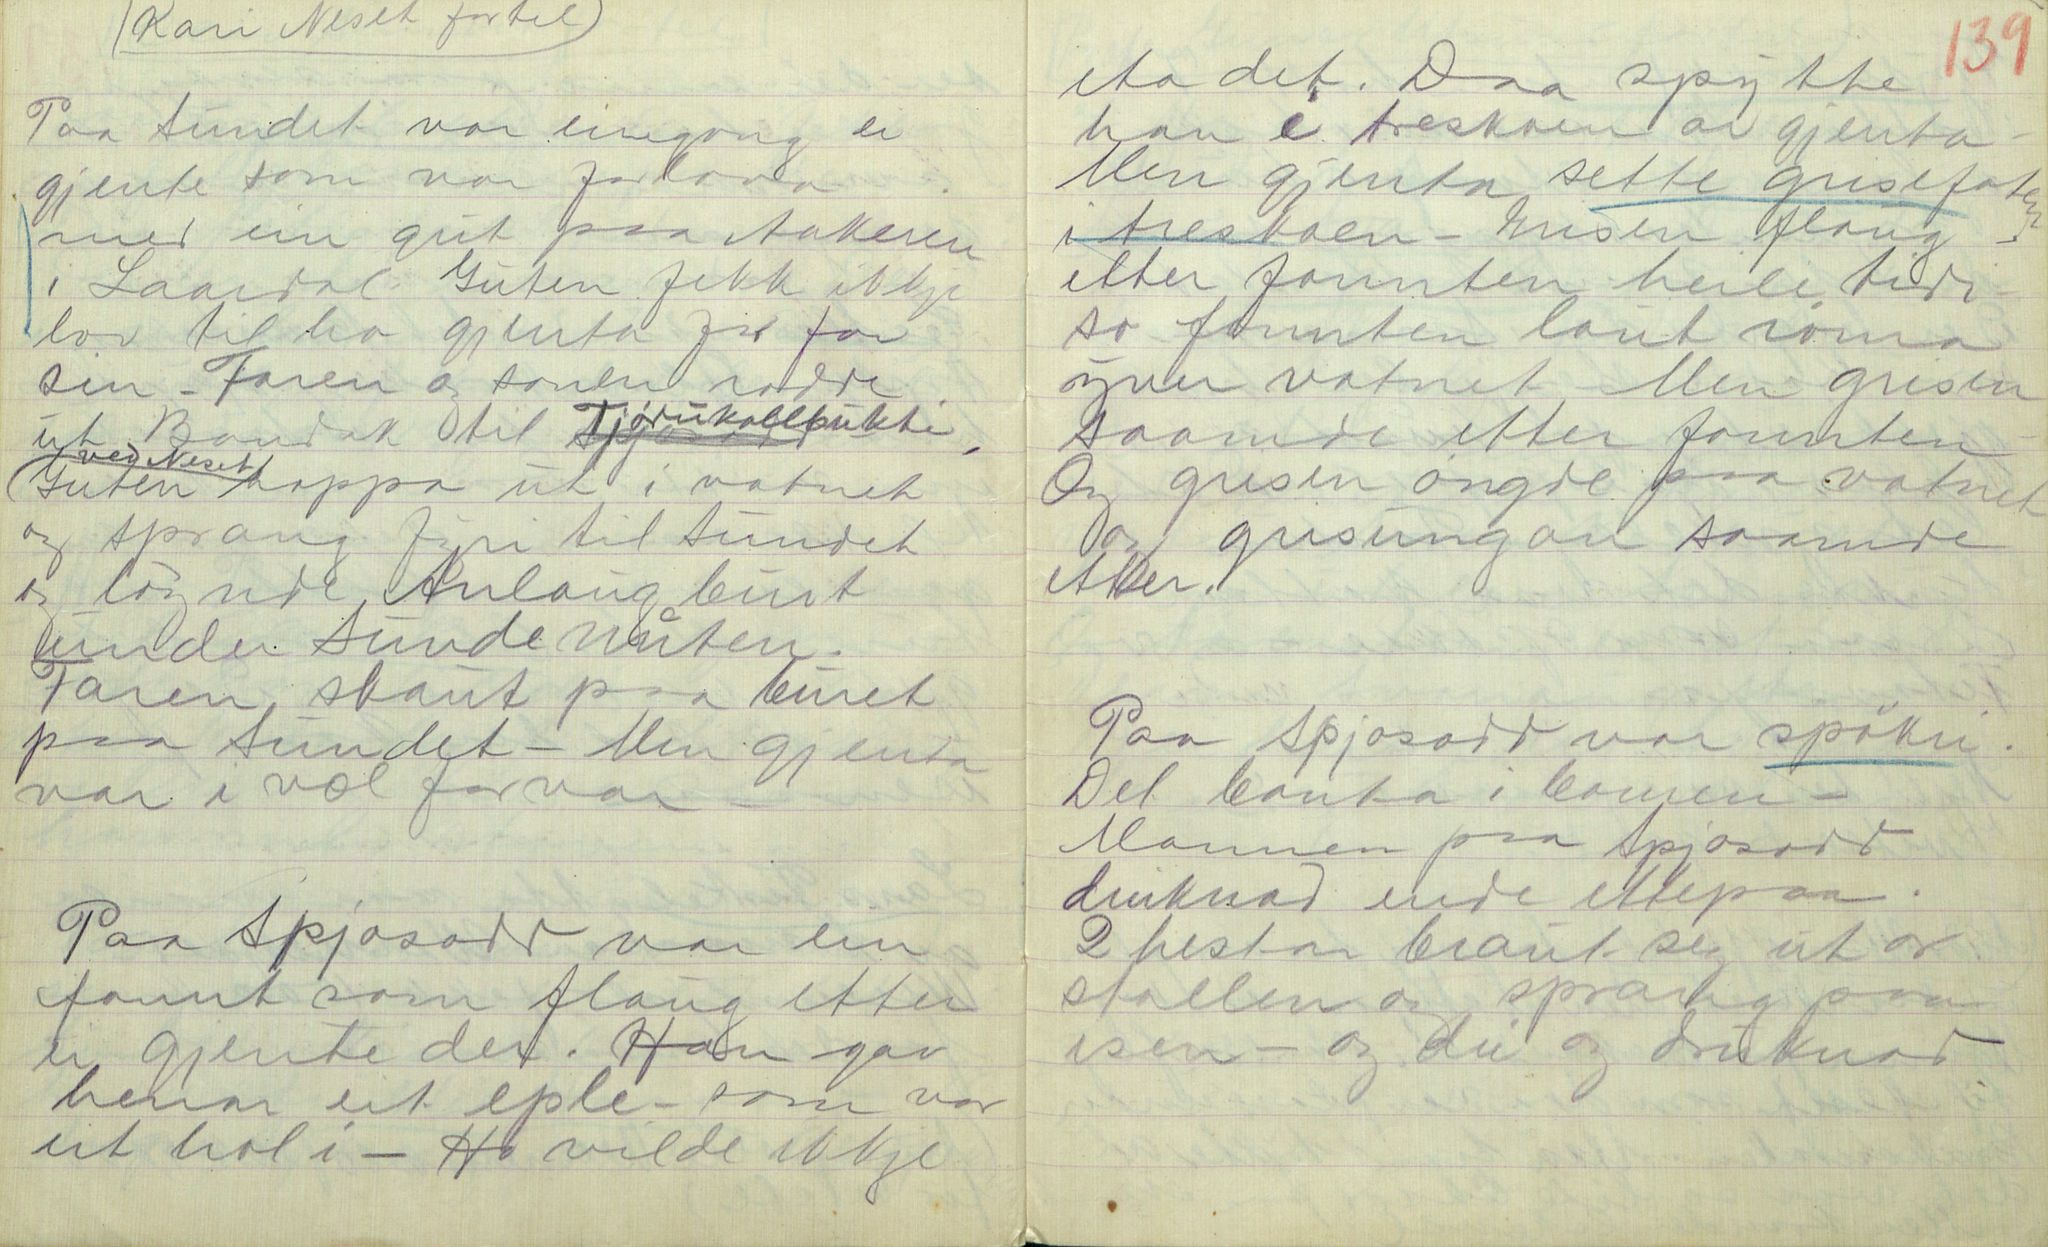 (Kari Neset fortel)
Paa Sundet var eingong ei
gjente som var forlova
med ein gut paa Aakeren
i Laardal. Guten fekk ikkje
lov til ha gjenta fyr far
sin - Faren og sonen rodde
ut Bandak til Tjørukallbukti,
ved Neset
(Guten hoppa ut i vatnet
og sprang fyri til Sundet
og løynde Anlaug burt
under Sundenuten.
Faren skaut paa buret
paa Sundet - Men gjenta
var i vel forvar -
Paa Spjosodd var ein
fannt som flaug etter
ei gjente der. Han gav
henar eit eple - som var
eit hol i - Ho vilde ikkje
139
eta det. Daa spytte
han i treskoen ar gjenta -
Men gjenta sette grisefoten
i treskoen - Grisen flaug
etter fannten heile tidi -
so fannten laut røma
øyver vatnet. Men grisen
saamde etter fannten -
Og grisen ongde paa vatnet
og grisungan saamde
etter.
Paa Spjosodd var spøkri.
Det banka i bomen -
Mannen paa Spjosodd
druknad ende ettepaa.
2 hestar braut seg ut or
stallen og sprang paa
isen - og dei og druknad